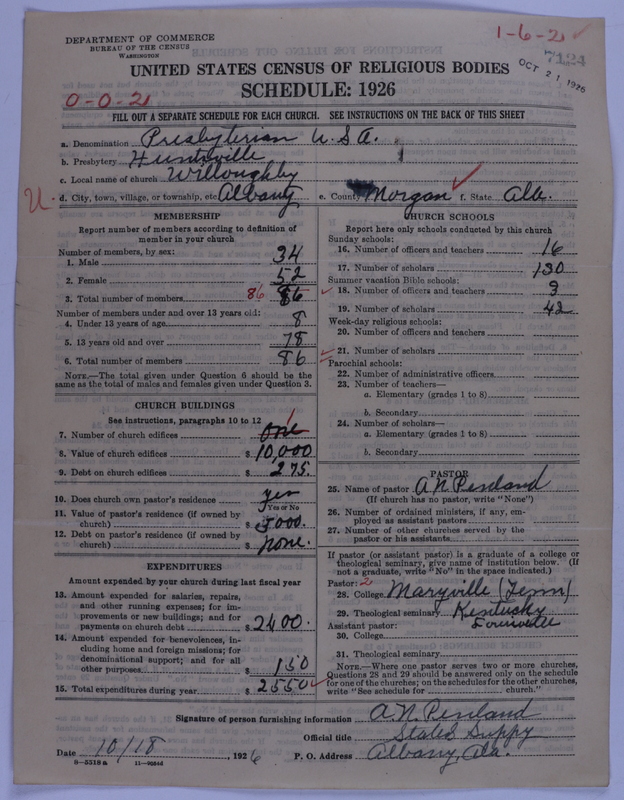 1-6-21
7124
OCT 21, 1926
DEPARTMENT OF COMMERCE
BUREAU OF THE CENSUS
WASHINGTON
UNITED STATES CENSUS OF RELIGIOUS BODIES
SCHEDULE: 1926
0-0-21
FILL OUT A SEPARATE SCHEDULE FOR EACH CHURCH. SEE INSTRUCTIONS ON THE BACK OF THIS SHEET
a. Denomination Presbyterian U.S.A.
b. Presbytery Huntsville
c. Local name of church Willoughby
U. d. City, town, village, or township, etc. Albany e. County Morgan f. State Ala.
MEMBERSHIP
Report number of members according to definition of
member in your church
Number of members, by sex:
1. Male 34
2. Female 52
3. Total number of members 86 86
Number of members under and over 13 years old:
4. Under 13 years of age 8
5. 13 years old and over 78
6. Total number of members 86
NOTE.—The total given under Question 6 should be the
same as the total of males and females given under Question 3.
CHURCH BUILDINGS
See instructions, paragraphs 10 to 12
7. Number of church edifices one 1
8. Value of church edifices $ 10,000
9. Debt on church edifices $ 275.
10. Does church own pastor's residence yes
Yes or No
11. Value of pastor's residence (if owned by
church) $ 5000.
12. Debt on pastor's residence (if owned by
church) $ none.
EXPENDITURES
Amount expended by your church during last fiscal year
13. Amount expended for salaries, repairs,
and other running expenses; for im-
provements or new buildings; and for
payments on church debt $ 2400.
14. Amount expended for benevolences, in-
cluding home and foreign missions; for
denominational support; and for all
other purposes $ 150
15. Total expenditures during year $ 2550
CHURCH SCHOOLS
Report here only schools conducted by this church
Sunday schools:
16. Number of officers and teachers 16
17. Number of scholars 130
Summer vacation Bible schools:
18. Number of officers and teachers 9
19. Number of scholars 42
Week-day religious schools:
20. Number of officers and teachers
21. Number of scholars
Parochial schools:
22. Number of administrative officers
23. Number of teachers—
a. Elementary (grades 1 to 8)
b. Secondary
24. Number of scholars—
a. Elementary (grades 1 to 8)
b. Secondary
PASTOR
25. Name of pastor A N Penland
(If church has no pastor, write "None")
26. Number of ordained ministers, if any, em-
ployed as assistant pastors
27. Number of other churches served by the
pastor or his assistants
If pastor (or assistant pastor) is a graduate of a college or
theological seminary, give name of institution below. (If
not a graduate, write "No" in the space indicated.)
Pastor: 2
28. College Maryville (Tenn)
29. Theological seminary Kentucky
Assistant pastor: Louisville
30. College
31. Theological seminary
NOTE.—Where one pastor serves two or more churches,
Questions 28 and 29 should be answered only on the schedule
for one of the churches; on the schedules for the other churches,
write "See schedule for church."
Signature of person furnishing information A.N. Penland
Official title Stated Supply
Date 10/18, 1926 P. O. Address Albany, Ala.
8-5518 a 11-9086d